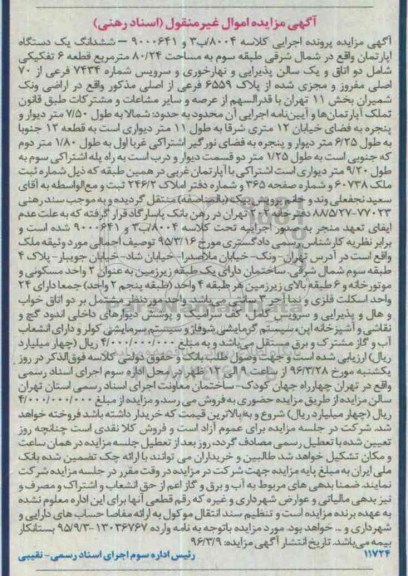 آگهی مزایده اموال غیرمنقول (اسناد رهنی)
آگهی مزایده پرونده اجرایی کلاسه ۸۰۰۴/ب۳ و ۹۰۰۰۶۴۱ – ششدانگ یک دستگاه
آپارتمان واقع در شمال شرقی طبقه سوم به مساحت ۸۰/۲۴ مترمربع قطعه ۶ تفکیکی
شامل دو اتاق و یک سالن پذیرایی و نهارخوری و سرویس شماره ۷۴۳۴ فرعی از ۷۰
اصلی مفروز و مجزی شده از پلاک ۶۵۵۹ فرعی از اصلی مذکور واقع در اراضی ونک
شمیران بخش ۱۱ تهران با قدرالسهم از عرصه و سایر مشاعات و مشترکات طبق قانون
تملک آپارتمان‌ها و آیین‌نامه اجرایی آن محدود به حدود: شمالا به طول ۷/۵۰ متر دیوار و
پنجره به فضای خیابان ۱۲ متری شرقا به طول ۱۱ متر دیواری است به قطعه ۱۲ جنوبا
به طول ۶/۲۵ متر دیوار و پنجره به فضای نورگیر اشتراکی غربا اول به طول ۱/۸۰ متر دوم
که جنوبی است به طول ۱/۲۵ متر دو قسمت دیوار و درب است به راه پله اشتراکی سوم به
طول ۹/۲۰ متر دیواری است اشتراکی با آپارتمان غربی در همین طبقه که ذیل شماره ثبت
۶۰۷۳۸ ملک و شماره صفحه ۳۶۵ و شماره دفتر املاک ۲۴۶/۲ ثبت و مع‌الواسطه به آقای
سعید نجفعلی وند و خانم پرویش نیک (بالمناصفه) منتقل گردیده و به موجب سند رهنی
۷۷۰۲۳-۸۸/۵/۲۷ تهران در رهن بانک پاسارگاد قرار گرفته که به علت عدم
ایفای تعهد منجر به صدور اجراییه تحت کلاسه ۸۰۰۴/ب۳ و ۹۰۰۰۶۴۱ شده است و
برابر نظریه کارشناس رسمی دادگستری مورخ ۹۵/۳/۱۶ توصیف اجمالی مورد وثیقه ملک
واقع است در آدرس تهران - ونک- خیابان ملاصدرا- خیابان شاد- خیابان جویبار- پلاک ۴
طبقه سوم شمال شرقی. ساختمان دارای یک طبقه زیرزمین به عنوان ۲ واحد مسکونی و
موتورخانه و ۶ طبقه بالای زیرزمین هر طبقه ۴ واحد (طبقه پنجم ۲ واحد) جمعا دارای ۲۴
واحد اسکلت فلزی و نما آجر ۳ سانتی می‌باشد. واحد موردنظر مشتمل بر دو اتاق خواب
و هال و پذیرایی و سرویس کامل، کف سرامیک و پوشش دیوارهای داخلی اندود گچ و
نقاشی و آشپزخانه اپن، سیستم گرمایشی شوفاژ و سیستم سرمایشی کولر و دارای انشعاب
آب و گاز مشترک و برق مستقل می‌باشد و به مبلغ ۴/۰۰۰/۰۰۰/۰۰۰ ریال (چهار میلیارد
ریال) ارزیابی شده است و جهت وصول طلب بانک و حقوق دولتی کلاسه فوق‌الذکر در روز
یکشنبه مورخ ۹۶/۳/۲۸ از ساعت ۹ الی ۱۲ ظهر در محل اداره سوم اجرای اسناد رسمی
واقع در تهران چهارراه جهان کودک- ساختمان معاونت اجرای اسناد رسمی استان تهران
سالن مزایده از طریق مزایده حضوری به فروش می رسد و مزایده از مبلغ ۴/۰۰۰/۰۰۰/۰۰۰
ریال (چهار میلیارد ریال) شروع و به بالاترین قیمت که خریدار داشته باشد فروخته خواهد
شد. شرکت در جلسه مزایده برای عموم آزاد است و فروش کلا نقدی است چنانچه روز
تعیین شده با تعطیل رسمی مصادف گردد، روز بعد از تعطیل جلسه مزایده در همان ساعت
و مکان تشکیل خواهد شد. طالبین و خریداران می توانند با ارائه چک تضمین شده بانک
ملی ایران به مبلغ پایه مزایده جهت شرکت در مزایده در وقت مقرر در جلسه مزایده شرکت
نمایند. ضمنا بدهی های مربوط به آب و برق و گاز اعم از حق انشعاب و اشتراک و مصرف و
نیز بدهی مالیاتی و عوارض شهرداری و غیره که رقم قطعی آنها برای این اداره معلوم نشده
به عهده برنده مزایده است و تنظیم سند انتقال موکول به ارائه مفاصا حساب های دارایی و
شهرداری و .. خواهد بود. مورد مزایده باتوجه به نامه وارده ۱۳۰۳۶۷۶۷-۹۵/۹/۳ بستانکار
بیمه می‌باشد. تاریخ انتشار آگهی مزایده: ۹۶/۳/۹
۱۱۷۲۴ رئیس اداره سوم اجرای اسناد رسمی- نقیبی